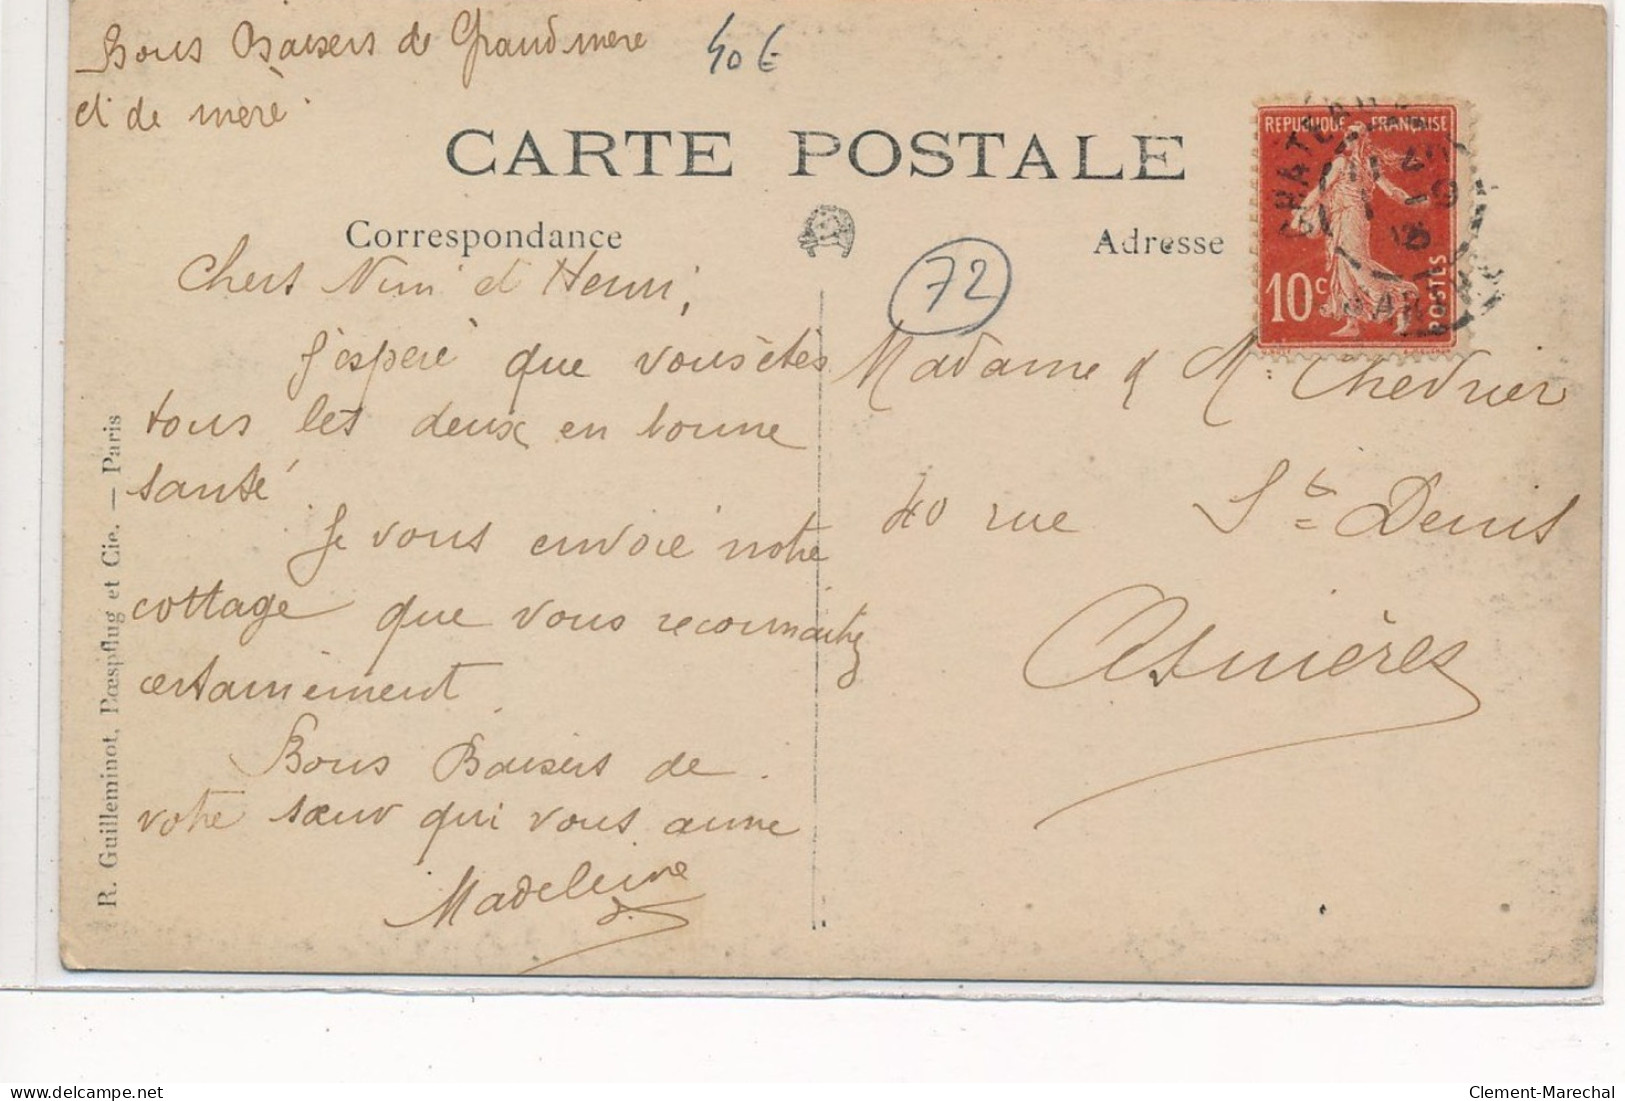 Bons Baisers de Grandmere
et de mère
40 €
CARTE POSTALE
Correspondance
Adresse
72
REPUBLIQUE FRANÇAISE
10c
POSTES
Chers Nini et Henri,
J'espère que vous êtes
tous les deux en bonne
santé
Je vous envoie notre
cottage que vous reconnaitrez
certainement
Bons Baisers de
votre sœur qui vous aime
Madeleine
Madame & Mr Chevrier
40 rue St Denis
Asnières
R. Guilleminot, Bœspflug et Cie. — Paris
delcampe.net
Clement-Marechal